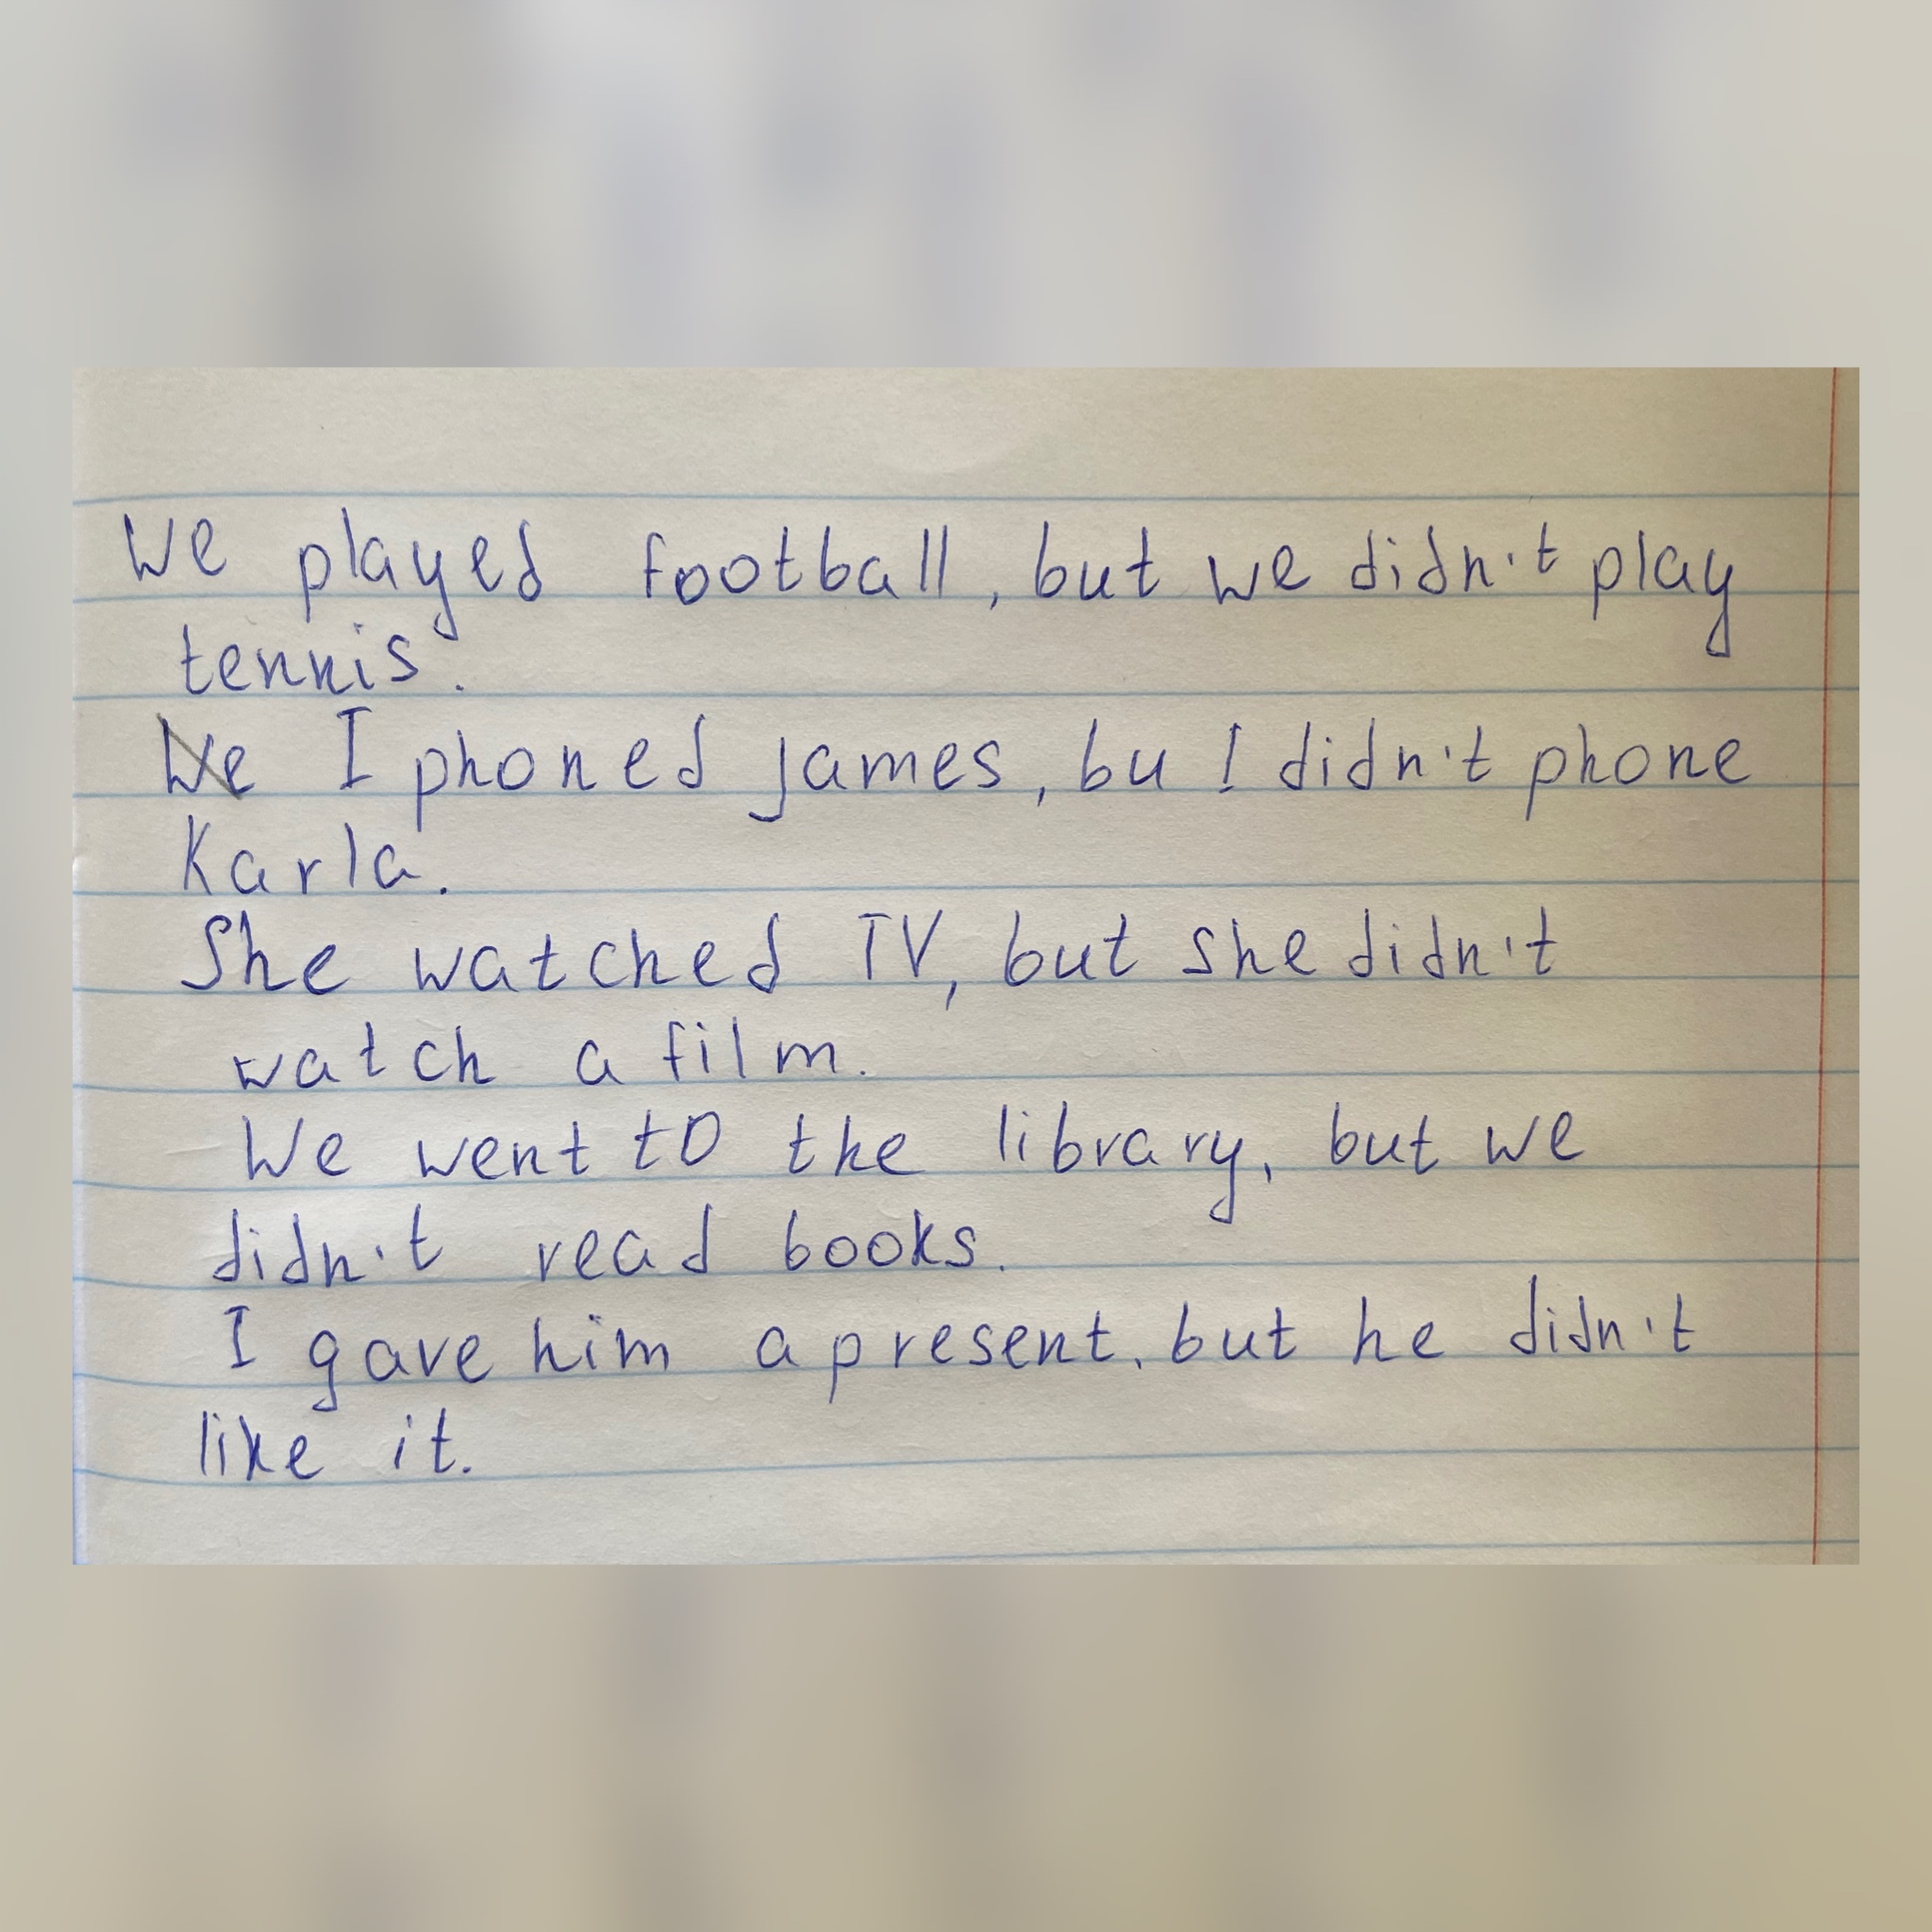 We played football, but we didn't play
tennis.
We I phoned james, bu I didn't phone
Karla.
She watched TV, but she didn't
watch a film.
We went to the library, but we
didn't read books.
I gave him a present, but he didn't
like it.